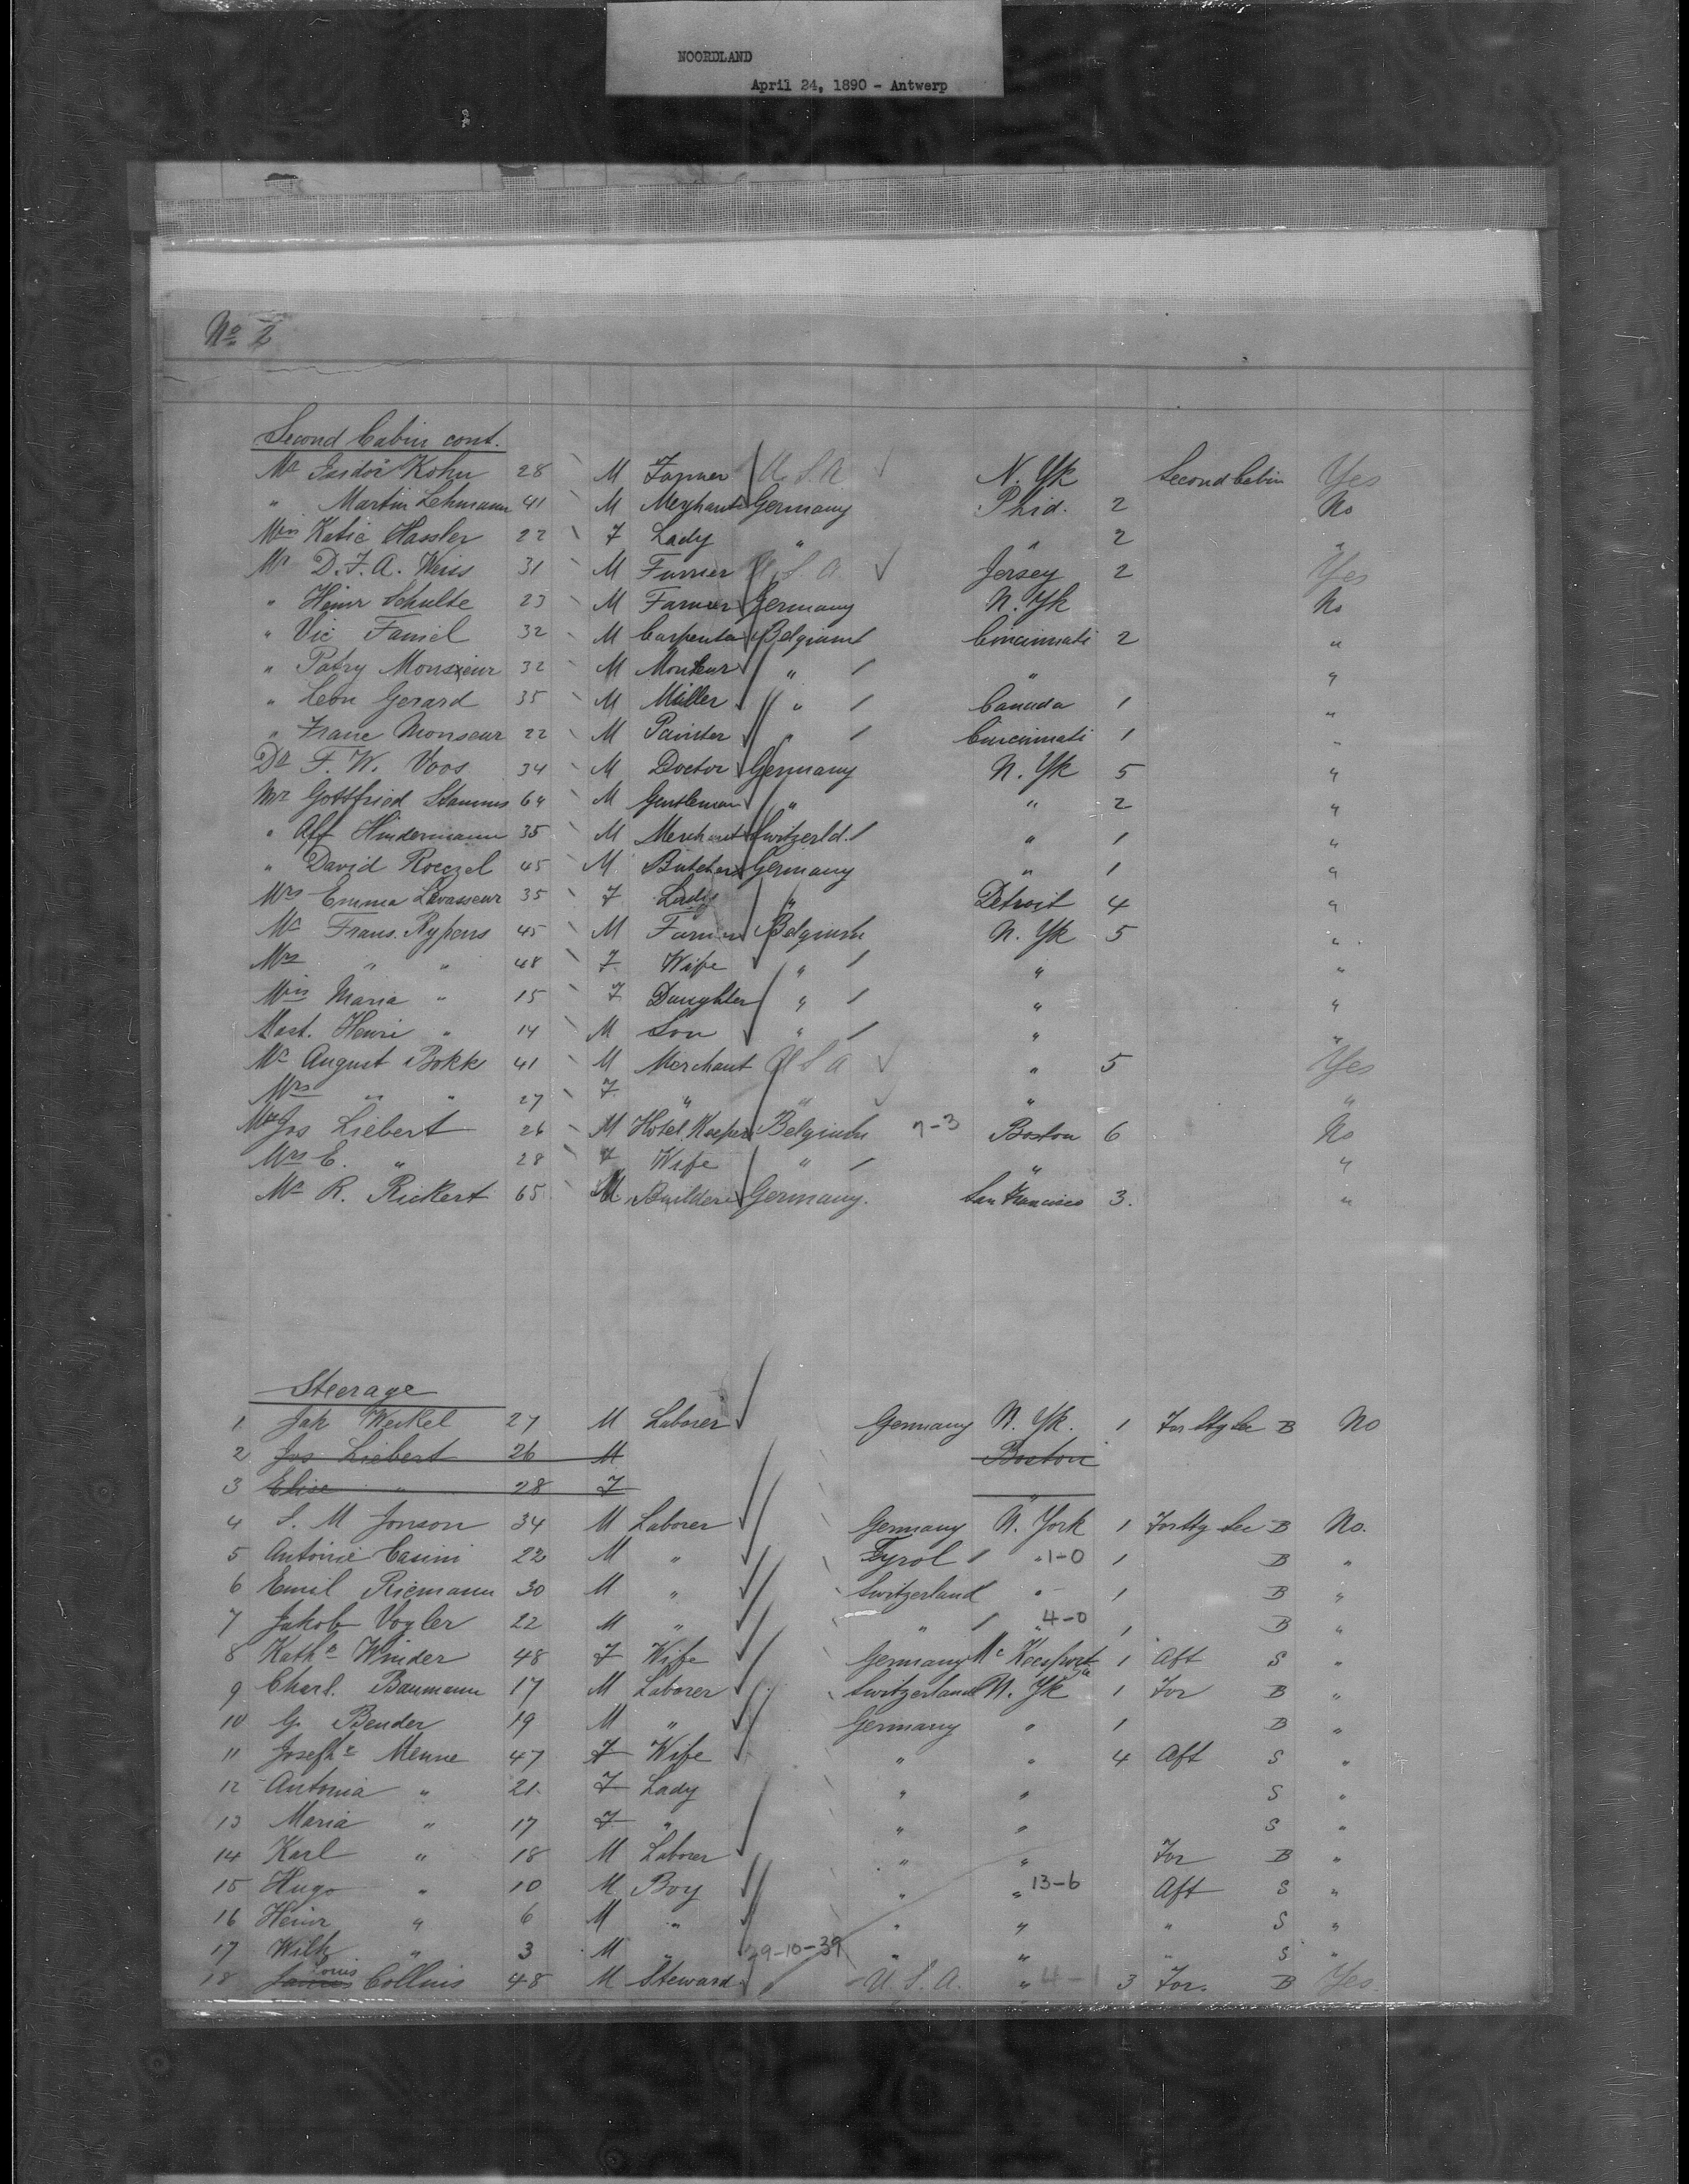 NOORDLAND
April 24, 1890 - Antwerp
No 2
Second Cabin cont.
Mr Isidor Kohn 28 M Farmer U.S.A N. Yk Second Cabin Yes
" Martin Lehmann 41 M Merchant Germany Phid. 2 No
Miss Katie Hassler 22 F Lady " " 2 "
Mr D.F.A. Weiss 31 M Furrier U.S.A. Jersey 2 Yes
" Heinr Schulte 23 M Farmer Germany N. Yk No
" Vic Famel 32 M Carpenter Belgium Cincinnati 2 "
" Patry Monsieur 32 M " " "
" Leon Gerard 35 M Miller " Canada 1 "
" Franc Monseur 22 M Painter " Cincinnati 1 "
Dr F. W. Voos 34 M Doctor Germany N. Yk 5 "
Mr Gottfried Stamms 64 M Gentleman " " 2 "
" Alf Hindermann 35 M Merchant Switzerld. " 1 "
" David Roeczel 45 M Butcher Germany " 1 "
Mrs Emma Levasseur 35 F Lady " Detroit 4 "
Mr Frans. Rypens 45 M Farmer Belgium N. Yk 5 "
Mrs " " 48 F Wife " " "
Miss Maria " 15 F Daughter " " "
Mast. Henri " 14 M Son " " "
Mr August Bokk 41 M Merchant U S A " 5 Yes
Mrs " " 27 F " " " "
Mr Jos Liebert 26 M Hotel Keeper Belgium 7-3 Boston 6 No
Mrs E. " 28 F Wife " " "
Mr R. Rickert 65 M Builder Germany. San Francisco 3. "
Steerage
1. Jak Weikel 27 M Laborer Germany N. Yk. 1 For Stg Sec B No
2 Jos Liebert 26 M Boston
3 Elise " 28 F "
4 S. M Jonson 34 M Laborer Germany N. York 1 For Stg Sec B No.
5 Antoine Casini 22 M " Tyrol " 1-0 1 B "
6 Emil Riemann 30 M " Switzerland " 1 B "
7 Jakob Vogler 22 M " " " 4-0 1 B "
8 Kathe Winder 48 F Wife Germany Mc Keesport Pa 1 Aft S "
9 Charl. Baumann 17 M Laborer Switzerland N. Yk 1 For B "
10 G. Bender 19 M " Germany " 1 B "
11 Josephe Menne 47 F Wife " " 4 Aft S "
12 Antonia " 21 F Lady " " S "
13 Maria " 17 F " " " S "
14 Karl " 18 M Laborer " " For B "
15 Hugo " 10 M Boy " " 13-6 Aft S "
16 Heinr " 6 M " " " " S "
17 Wilh " 3 M " 9-10-39 " " " S "
18 James Louis Collins 48 M Steward U. S. A. " 4-1 3 For. B Yes.